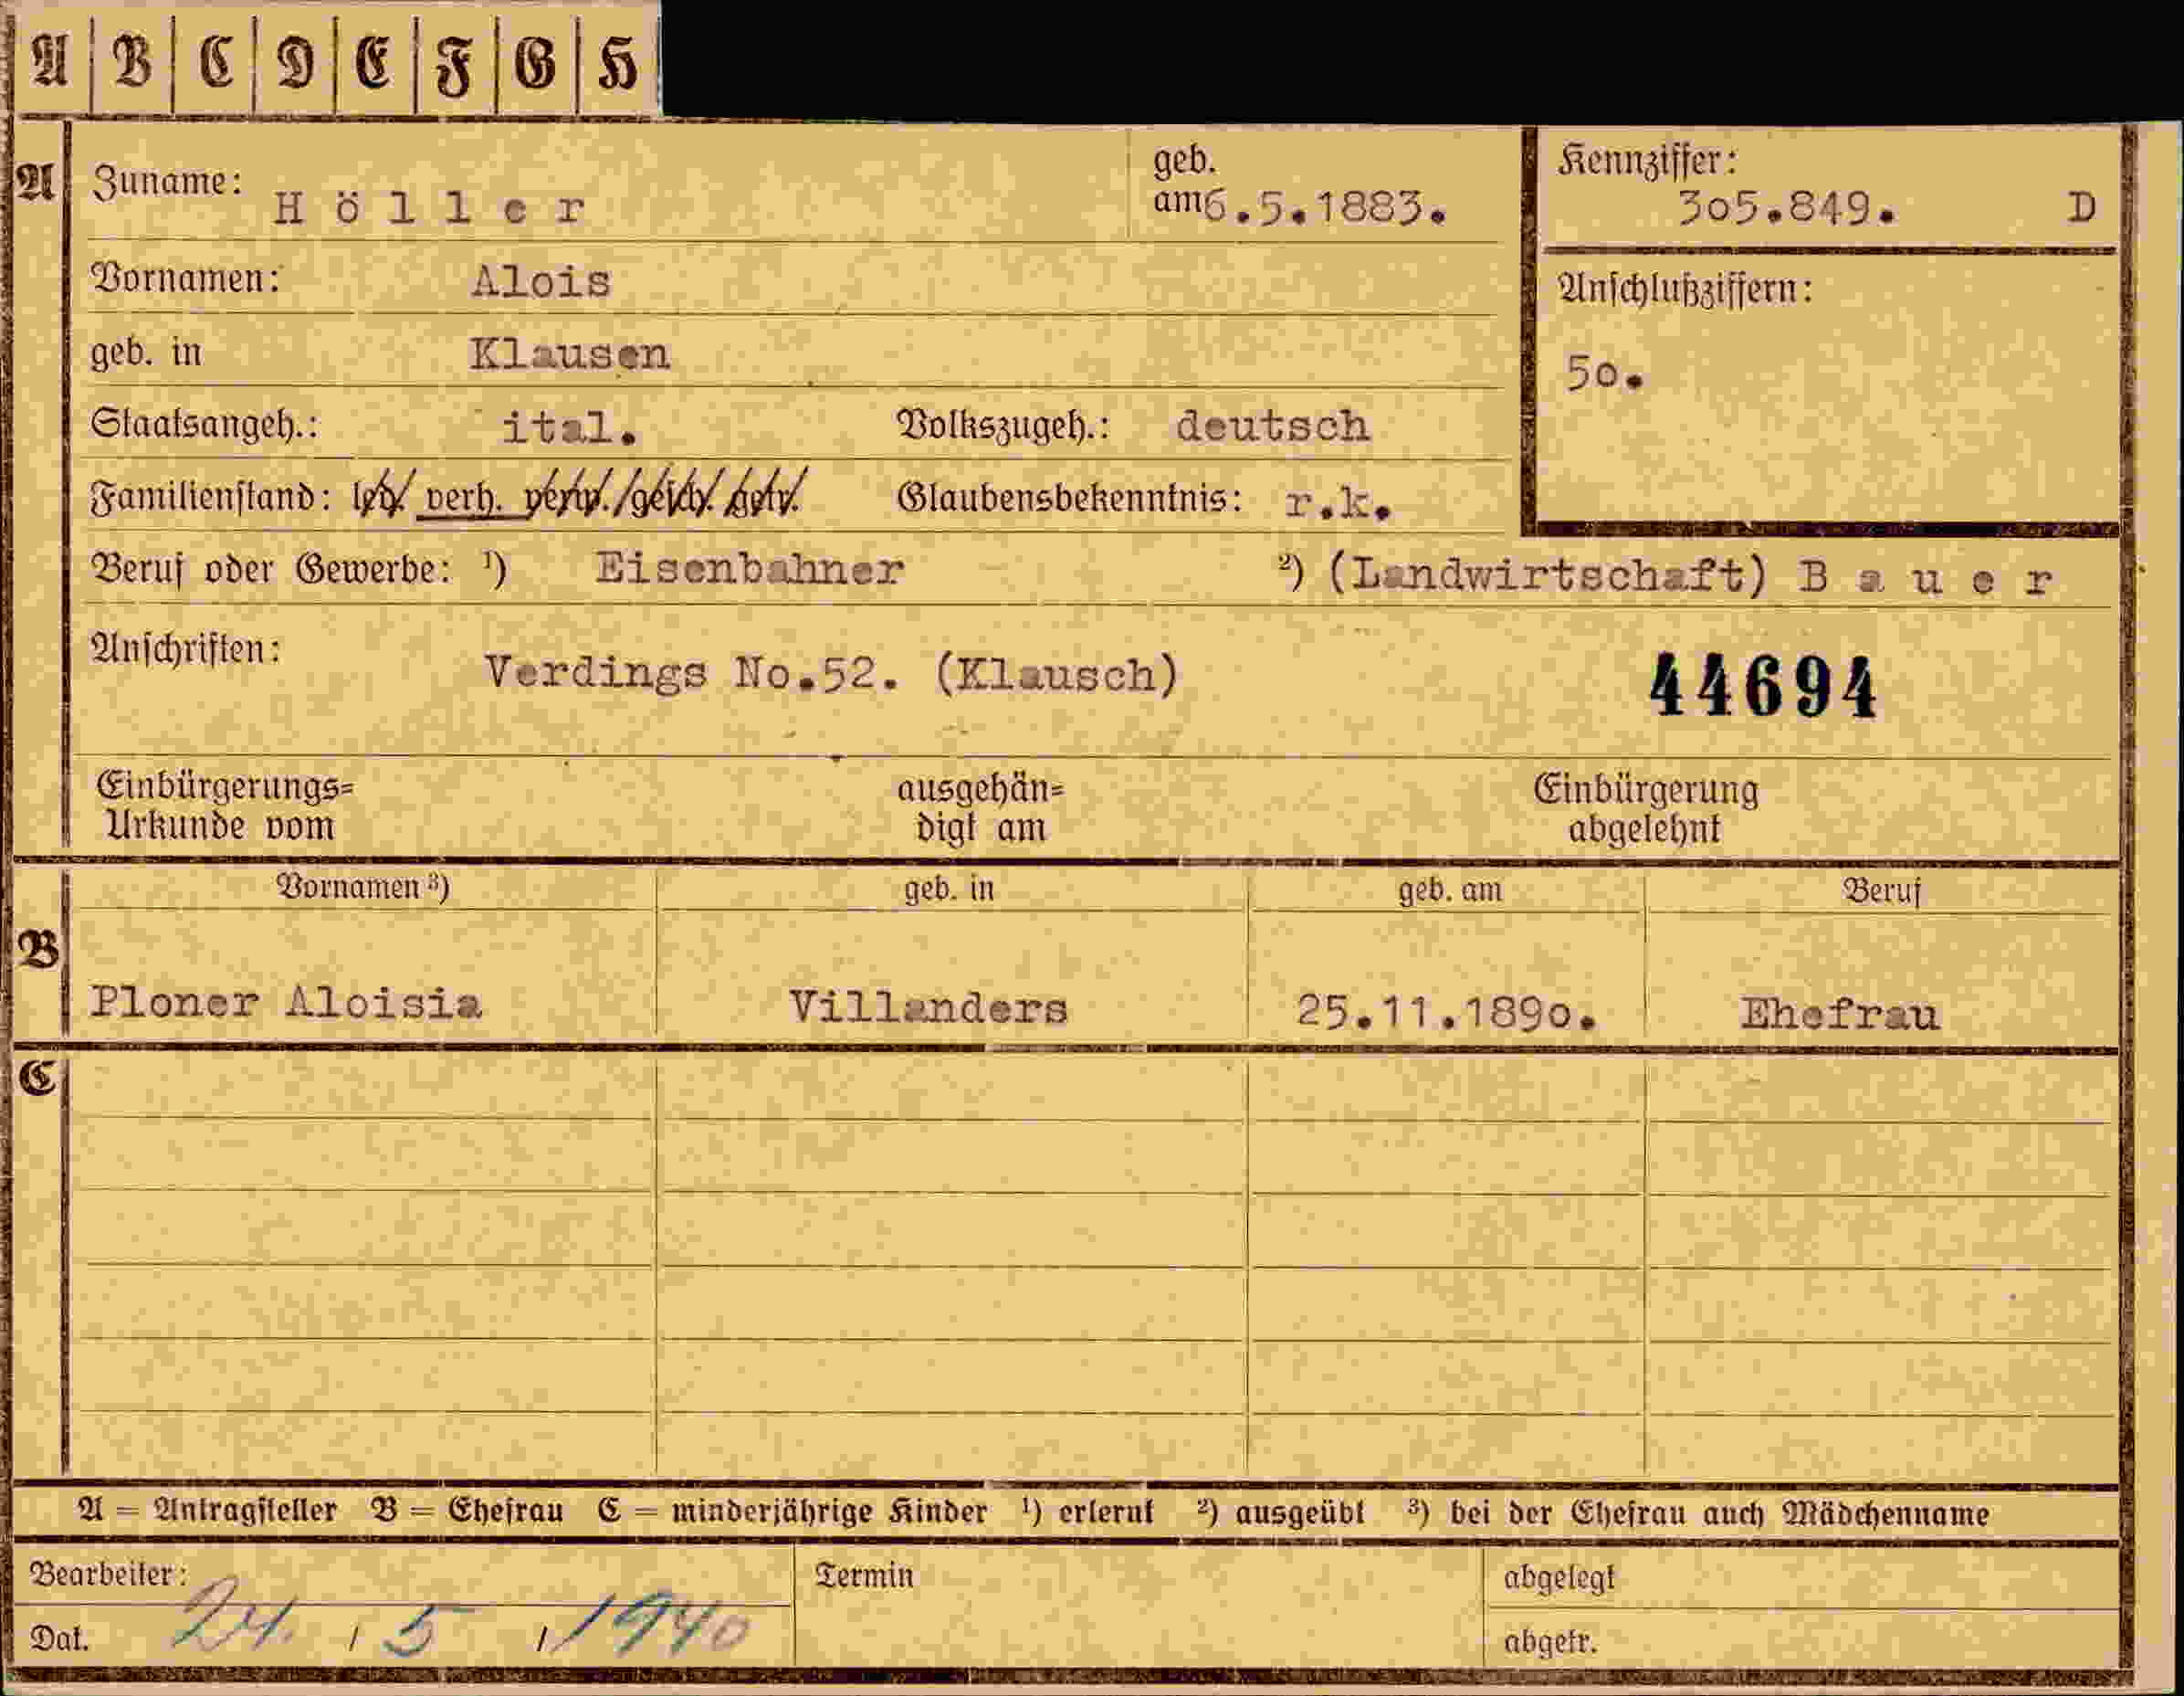 A B C D E F G H
A Zuname: Höller geb. am 6.5.1883. Kennziffer: 305.849. D
Vornamen: Alois Anschlußziffern:
geb. in Klausen 50.
Staatsangeh.: ital. Volkszugeh.: deutsch
Familienstand: led. verh. verw. gesch. getr. Glaubensbekenntnis: r.k.
Beruf oder Gewerbe: ¹) Eisenbahner ²) (Landwirtschaft) Bauer
Anschriften: Verdings No.52. (Klausch) 44694
Einbürgerungs= ausgehän= Einbürgerung
Urkunde vom digt am abgelehnt
Vornamen ³) geb. in geb. am Beruf
B
Ploner Aloisia Villanders 25.11.1890. Ehefrau
C
A = Antragsteller B = Ehefrau C = minderjährige Kinder ¹) erlernt ²) ausgeübt ³) bei der Ehefrau auch Mädchenname
Bearbeiter: Termin abgelegt
Dat. 24. / 5 / 1940 abgetr.